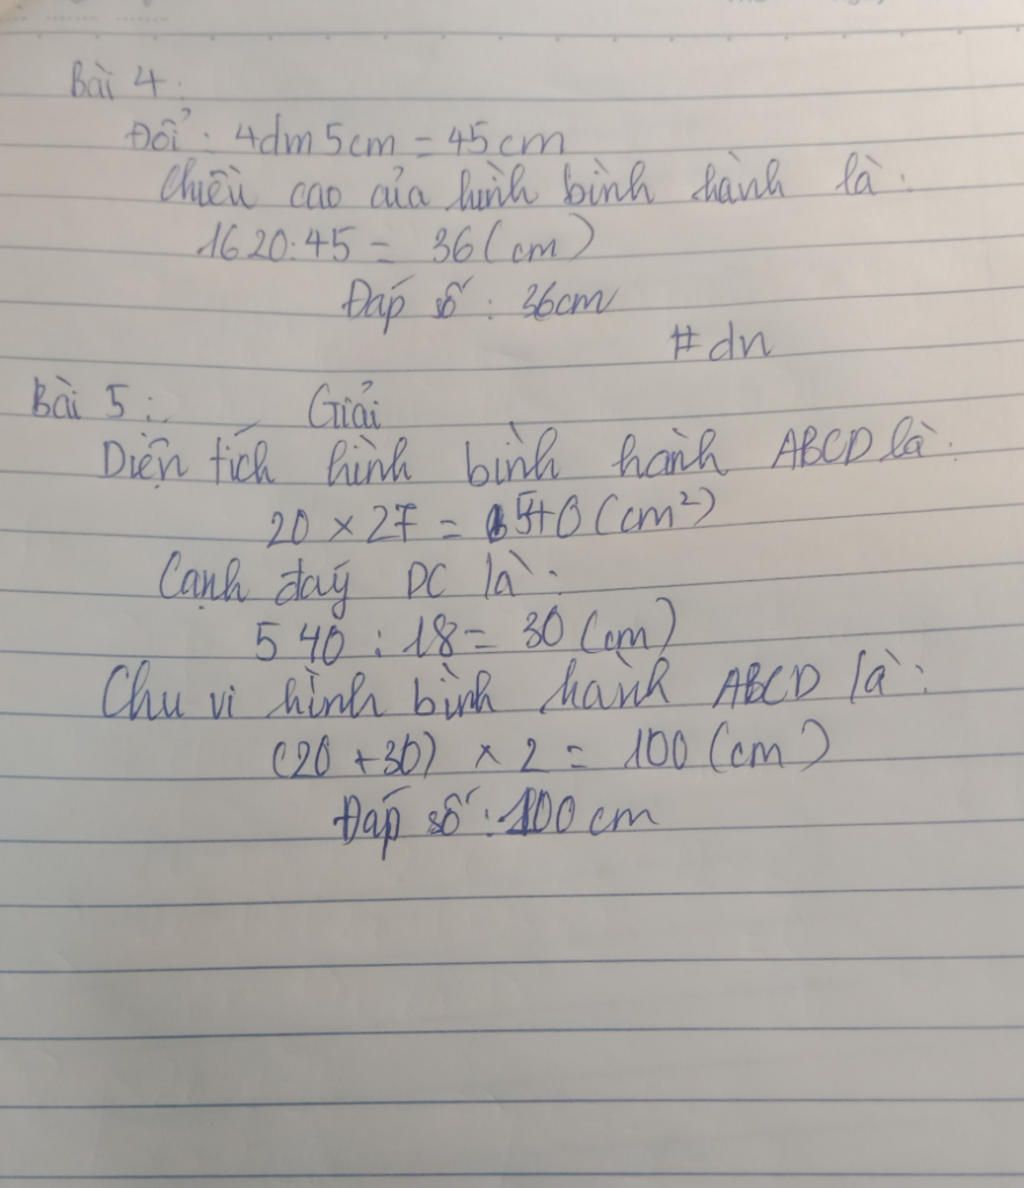 Bài 4:
Đổi: 4dm 5cm = 45cm
Chiều cao của hình bình hành là:
1620:45 = 36 (cm)
Đáp số: 36cm
#dn
Bài 5: Giải
Diện tích hình bình hành ABCD là:
20 × 27 = 540 (cm²)
Cạnh đáy DC là:
540 : 18 = 30 (cm)
Chu vi hình bình hành ABCD là:
(20 + 30) × 2 = 100 (cm)
Đáp số: 100 cm